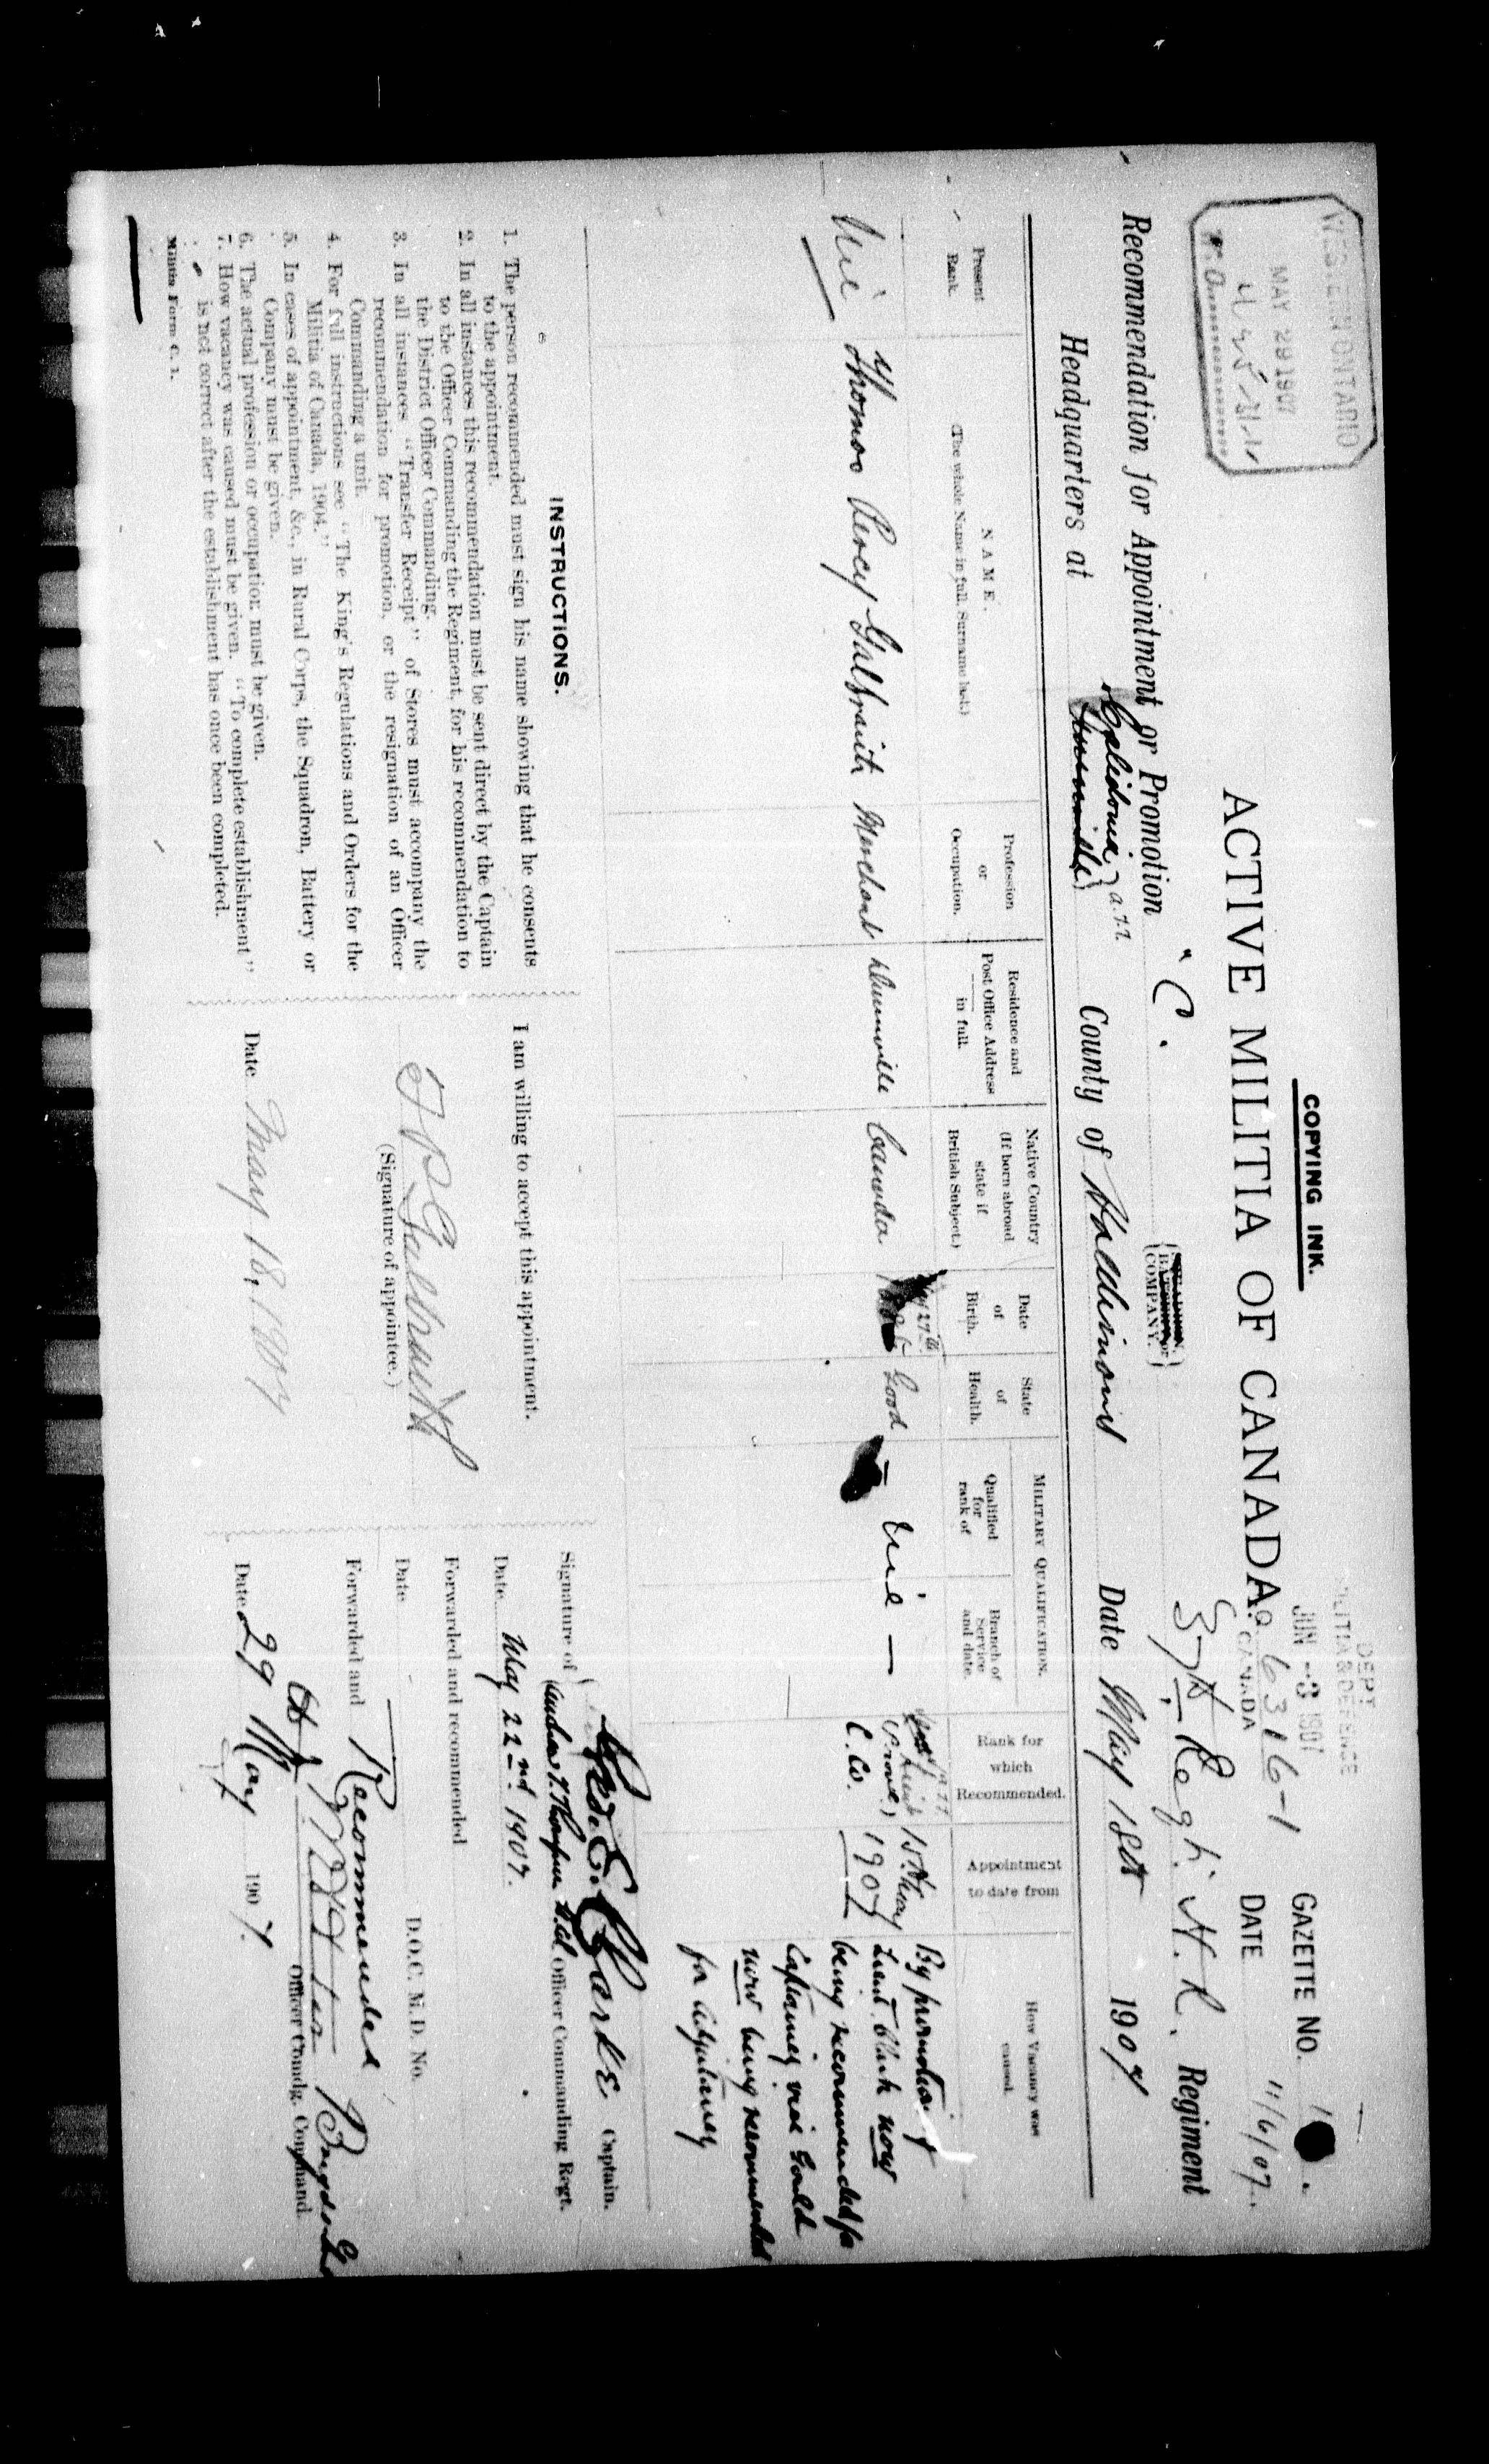 COPYING INK.
WESTERN ONTARIO
MAY 29 1907
DEPT
MILITIA & DEFENCE
JUN -3 1907
CANADA
6316-1
GAZETTE NO.
DATE 11/6/07.
ACTIVE MILITIA OF CANADA.
Recommendation for Appointment or Promotion "C" {SQUADRON, BATTERY or COMPANY.} 37th Regt. H. R. Regiment
Caledonia
Headquarters at Dunnville County of Haldimand Date May 18th 1907
Present Rank.
NAME.
(The whole Name in full, Surname last.)
Profession or Occupation.
Residence and Post Office Address in full.
Native Country (If born abroad state if British Subject.)
Date of Birth.
State of Health.
MILITARY QUALIFICATION.
Qualified for rank of
Branch of Service and date.
Rank for which Recommended.
Appointment to date from
How Vacancy was caused.
Nil
Thomas Percy Galbraith
Merchant
Dunnville
Canada
27th
Good
— Nil —
Lieut
(Provl)
C. Co.
15th May
1907
By promotion of
Lieut. Black now
being recommended for
Captaincy vice Gould
now being recommended
for Adjutancy
INSTRUCTIONS.
1. The person recommended must sign his name showing that he consents
to the appointment.
2. In all instances this recommendation must be sent direct by the Captain
to the Officer Commanding the Regiment, for his recommendation to
the District Officer Commanding.
3. In all instances "Transfer Receipt" of Stores must accompany the
recommendation for promotion, or the resignation of an Officer
Commanding a unit.
4. For full instructions see "The King's Regulations and Orders for the
Militia of Canada, 1904."
5. In cases of appointment, &c., in Rural Corps, the Squadron, Battery or
Company must be given.
6. The actual profession or occupation must be given.
7. How vacancy was caused must be given. "To complete establishment"
is not correct after the establishment has once been completed.
Militia Form C. 1.
I am willing to accept this appointment.
T P Galbraith
(Signature of appointee.)
Date May 18, 1907
Signature of
Captain.
Andrew T. Thompson Lt. Col. Officer Commanding Regt.
Date May 22nd 1907.
Forwarded and recommended
D.O.C. M.D. No.
Date
Forwarded and Recommended
Officer Comdg. Command.
Date 29 May 1907.